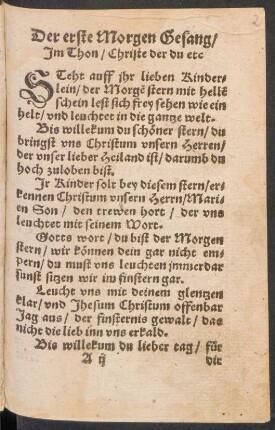 2
Der erste Morgen Gesang/
Im Thon / Christe der du etc
STeht auff jhr lieben Kinder-
lein / der Morgē stern mit hellē
schein lest sich frey sehen wie ein
helt / vnd leuchtet in die gantze welt.
Bis willekum du schöner stern / du
bringst vns Christum vnsern Herren /
der vnser lieber Heiland ist / darumb du
hoch zuloben bist.
Jr Kinder solt bey diesem stern / er-
kennen Christum vnsern Herrn / Mari-
en Son / den trewen hort / der vns
leuchtet mit seinem Wort.
Gotts wort / du bist der Morgen
stern / wir können dein gar nicht em-
pern / du must vns leuchten jmmerdar
sunst sitzen wir im finstern gar.
Leucht vns mit deinem glentzen
klar / vnd Jhesum Christum offenbar
Jag aus / der finsternis gewalt / das
nicht die lieb inn vns erkald.
Bis willekum du lieber tag / für
A ij
dir